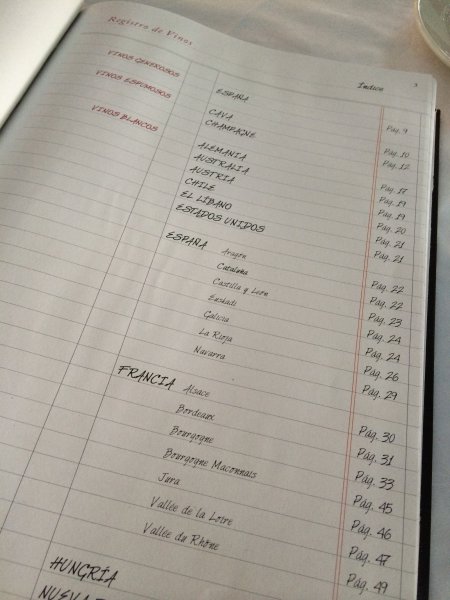 Registro de Vinos Índice 3
VINOS GENEROSOS ESPAÑA Pág. 9
VINOS ESPUMOSOS CAVA Pág. 10
CHAMPAGNE Pág. 12
VINOS BLANCOS ALEMANIA Pág. 17
AUSTRALIA Pág. 19
AUSTRIA Pág. 19
CHILE Pág. 20
EL LÍBANO Pág. 21
ESTADOS UNIDOS Pág. 21
ESPAÑA Aragón Pág. 22
Cataluña Pág. 22
Castilla y León Pág. 23
Euskadi Pág. 24
Galicia Pág. 24
La Rioja Pág. 26
Navarra Pág. 29
FRANCIA Alsace Pág. 30
Bordeaux Pág. 31
Bourgogne Pág. 33
Bourgogne Maconnais Pág. 45
Jura Pág. 46
Vallée de la Loire Pág. 47
Vallée du Rhône Pág. 49
HUNGRÍA